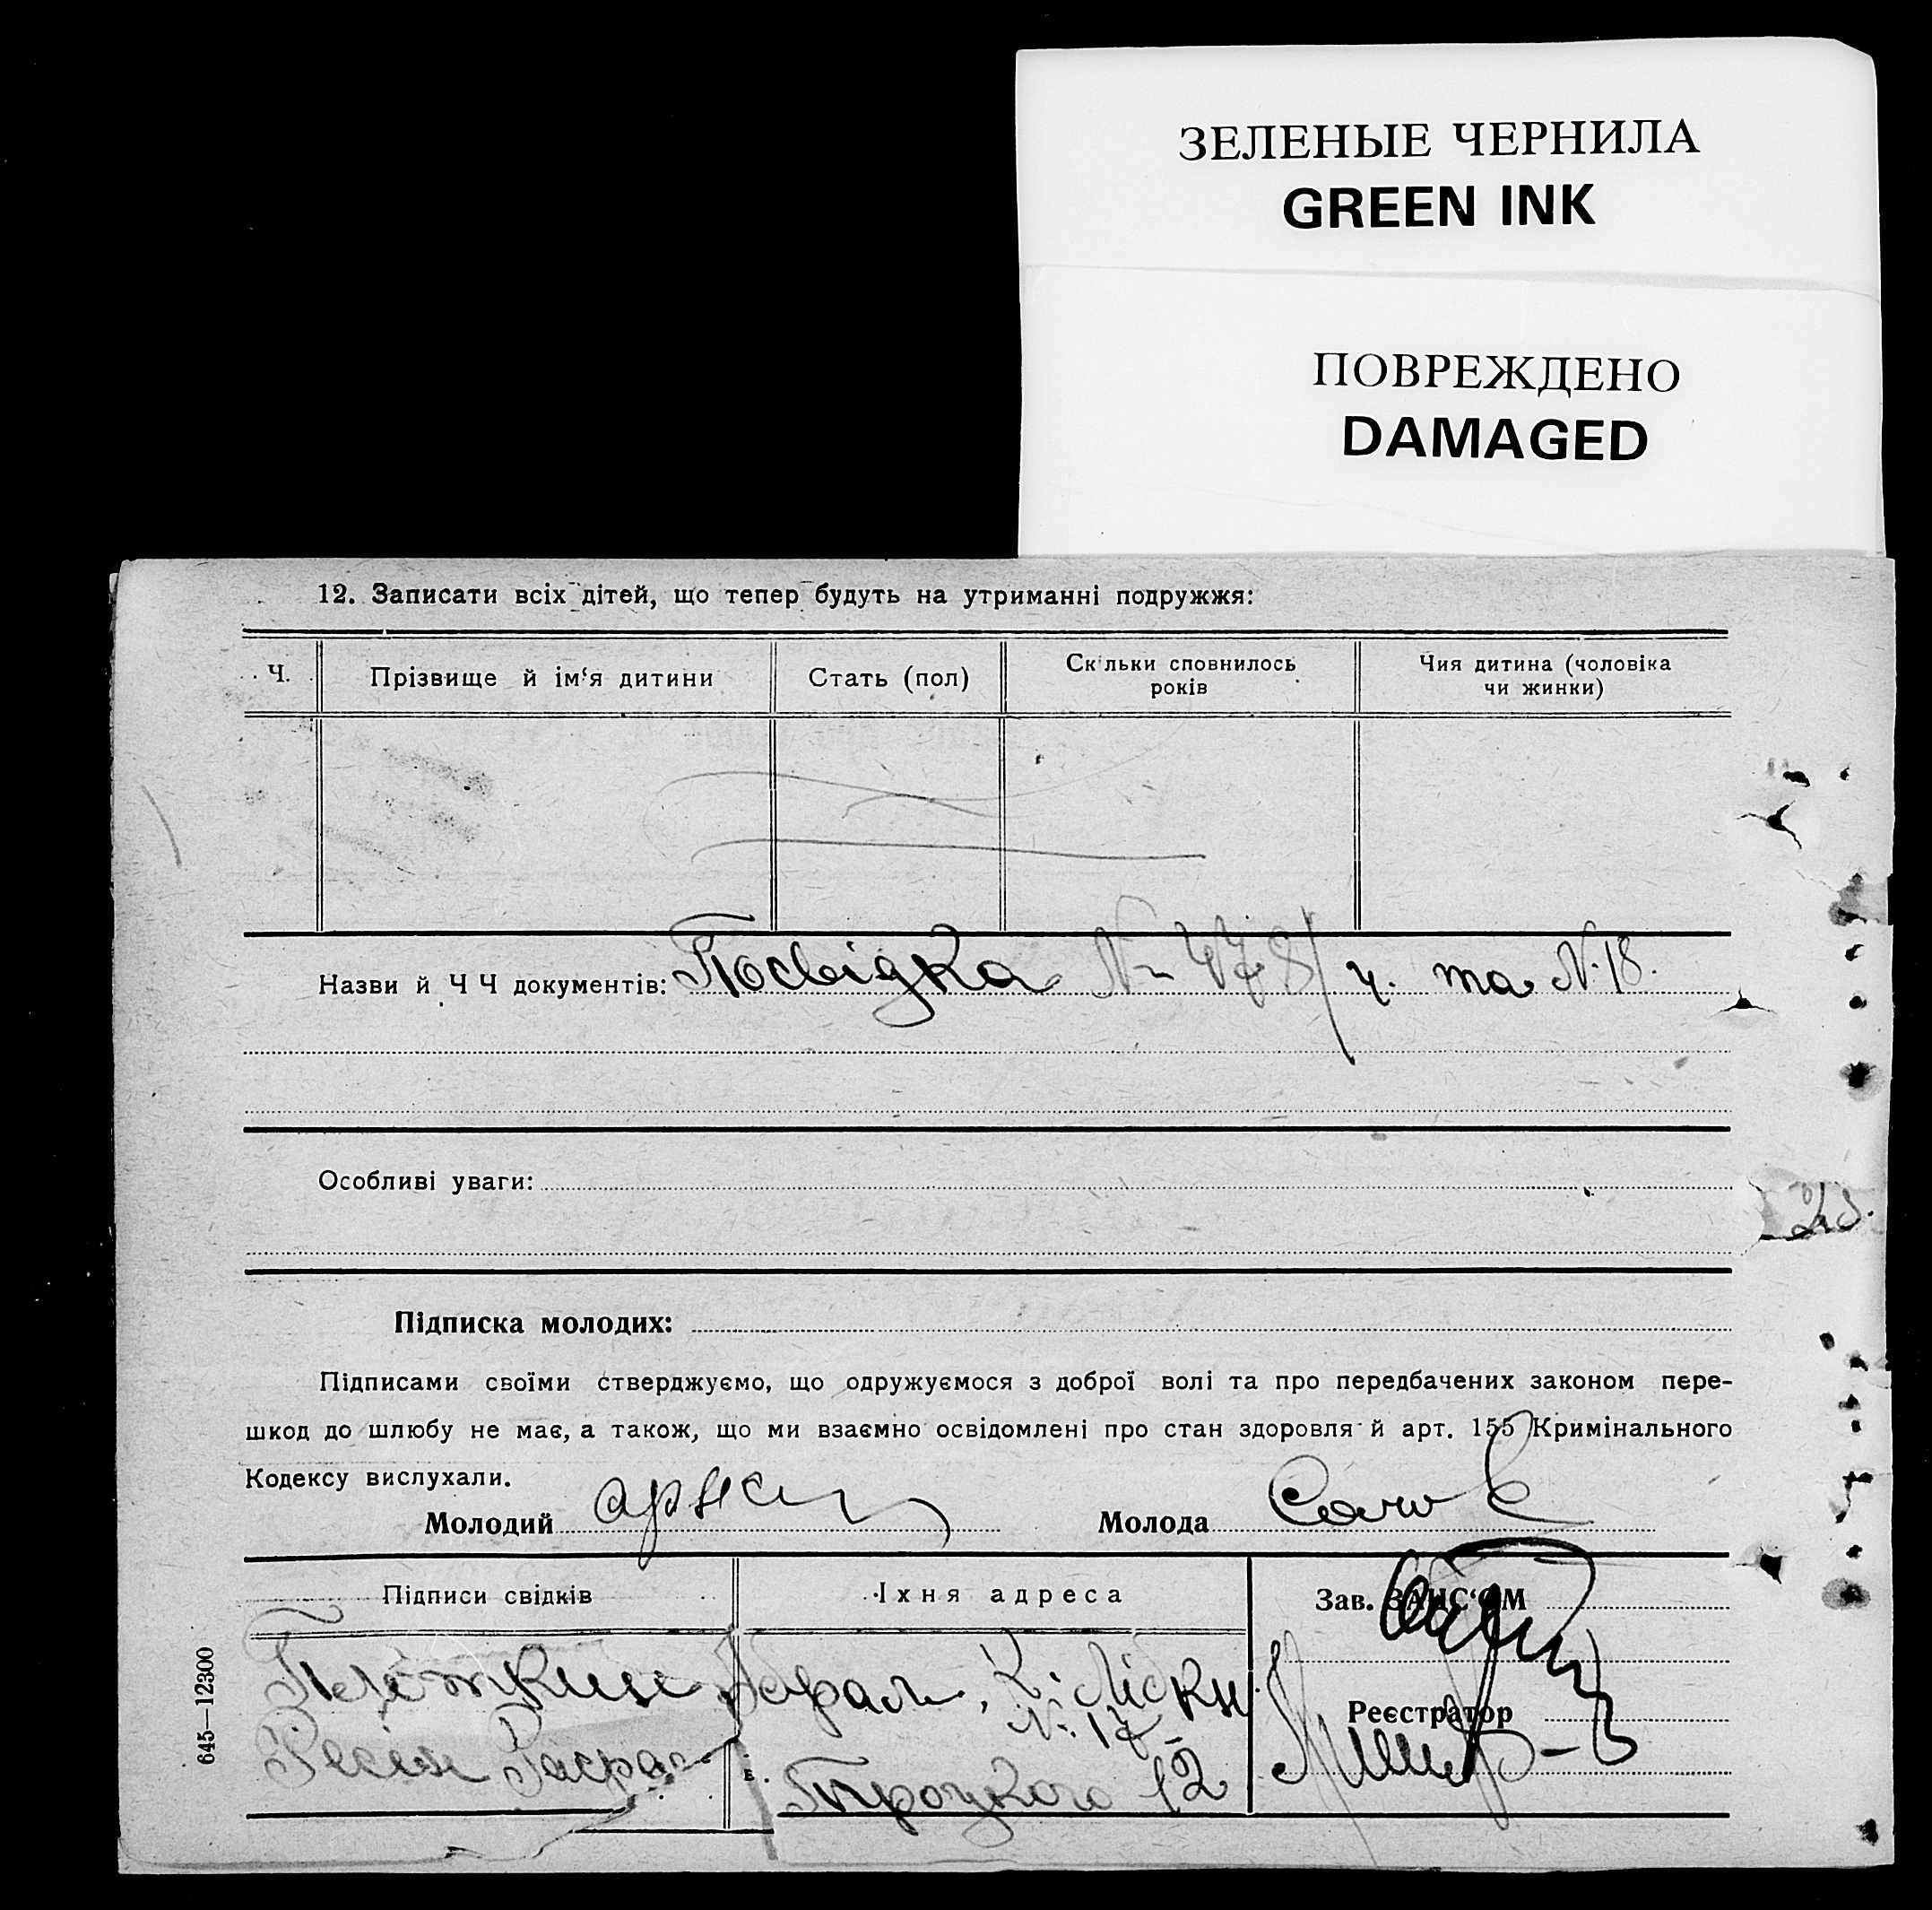 ЗЕЛЕНЫЕ ЧЕРНИЛА
GREEN INK
ПОВРЕЖДЕНО
DAMAGED
12. Записати всіх дітей, що тепер будуть на утриманні подружжя:
Ч. Прізвище й ім‘я дитини Стать (пол) Скільки сповнилось років Чия дитина (чоловіка чи жинки)
Назви й ЧЧ документів: Посвідка № 478/ч. та №18.
Особливі уваги:
23.
Підписка молодих:
Підписами своїми стверджуємо, що одружуємося з доброї волі та про передбачених законом пере-
шкод до шлюбу не має, а також, що ми взаємно освідомлені про стан здоровля й арт. 155 Кримінального
Кодексу вислухали.
Молодий Молода
Підписи свідків Їхня адреса Зав. ЗАГС‘ОМ
К. Лібкн
№ 17
Реєстратор
Троцкого 12
645—12300